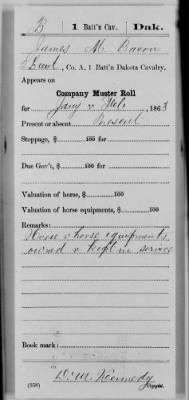 B | 1 Batt'n Cav. | Dak.
James M. Bacon
, Co. A, 1 Batt'n Dakota Cavalry.
Appears on
Company Muster Roll
for Jany & Feb, 1863
Present or absent Present
Stoppage, $ 100 for
Due Gov't, $ 100 for
Valuation of horse, $ 100
Valuation of horse equipments, $ 100
Remarks:
Horse & horse equipments
owned & kept in service
Book mark:
(358) Wm. Kennedy
Copyist.